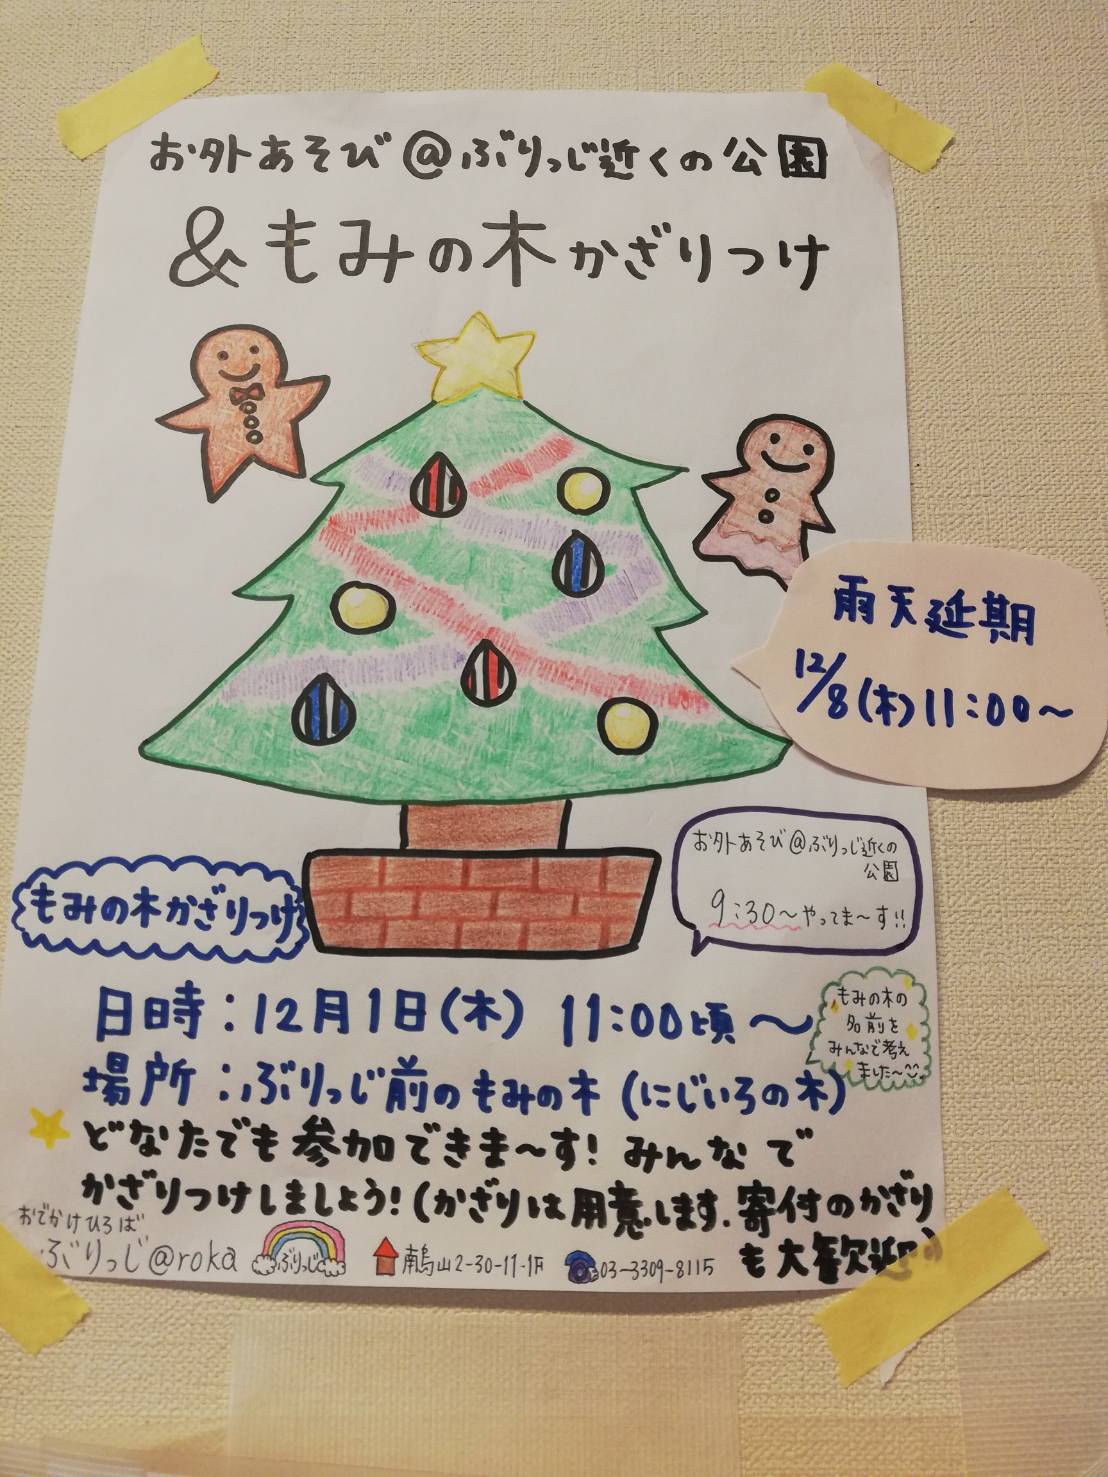 お外あそび@ぶりっじ近くの公園
&もみの木かざりつけ
雨天延期
12/8(木)11:00〜
お外あそび@ぶりっじ近くの
公園
9:30〜やってま〜す!!
もみの木かざりつけ
日時:12月1日(木) 11:00頃〜
もみの木の
名前を
みんなで考え
ました〜
場所:ぶりっじ前のもみの木(にじいろの木)
どなたでも参加できま〜す!みんなで
かざりつけしましょう!(かざりは用意します.寄付のかざり
も大歓迎)
おでかけひろば
ぶりっじ@roka
ぶりっじ
南烏山2-30-11-1F
03-3309-8115